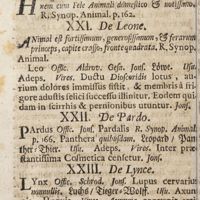 nem cum Fele Animali domestico & notissimo,
R. Synop. Animal. p. 162.
XXI. De Leone.
ANimal est fortissimum, generosissimum, & ferarum
princeps, capite crasso, fronte quadrata, R. Synop.
Animal.
Leo Offic. Aldrov. Gesn. Jonst. Löwe. Usu.
Adeps, Vires. Ductu Dioscuridis lotus, au-
rium dolores immissus sistit, & membris frigore
adustis felici successu illinitur. Eodem qui-
dam in scirrhis & pernionibus utuntur. Jonst.
XXII. De Pardo.
PArdus Offic. Jonst. Pardalis R. Synop. Animal.
p. 166. Panthera quibusdam. Leopard/ Pan-
ther/Thier. Usu. Adeps. Vires. Inter præ-
stantissima Cosmetica censetur. Jonst.
XXIII. De Lynce.
LYnx Offic. Schrod. Jonst. Lupus cervarius
nonnullis. Luchs/ Tieger-Wolf. Usu. Axun-